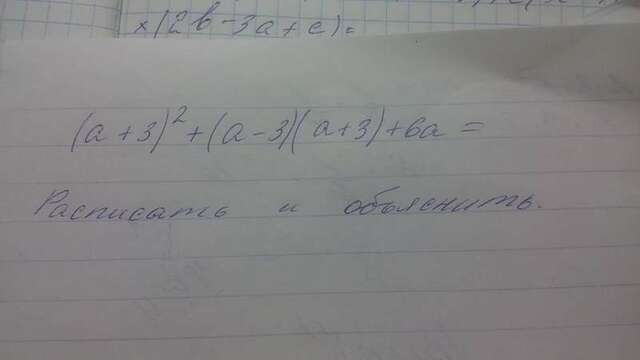 x(2b-3a+c)=
(a+3)²+(a-3)(a+3)+6a=
Расписать и объяснить.